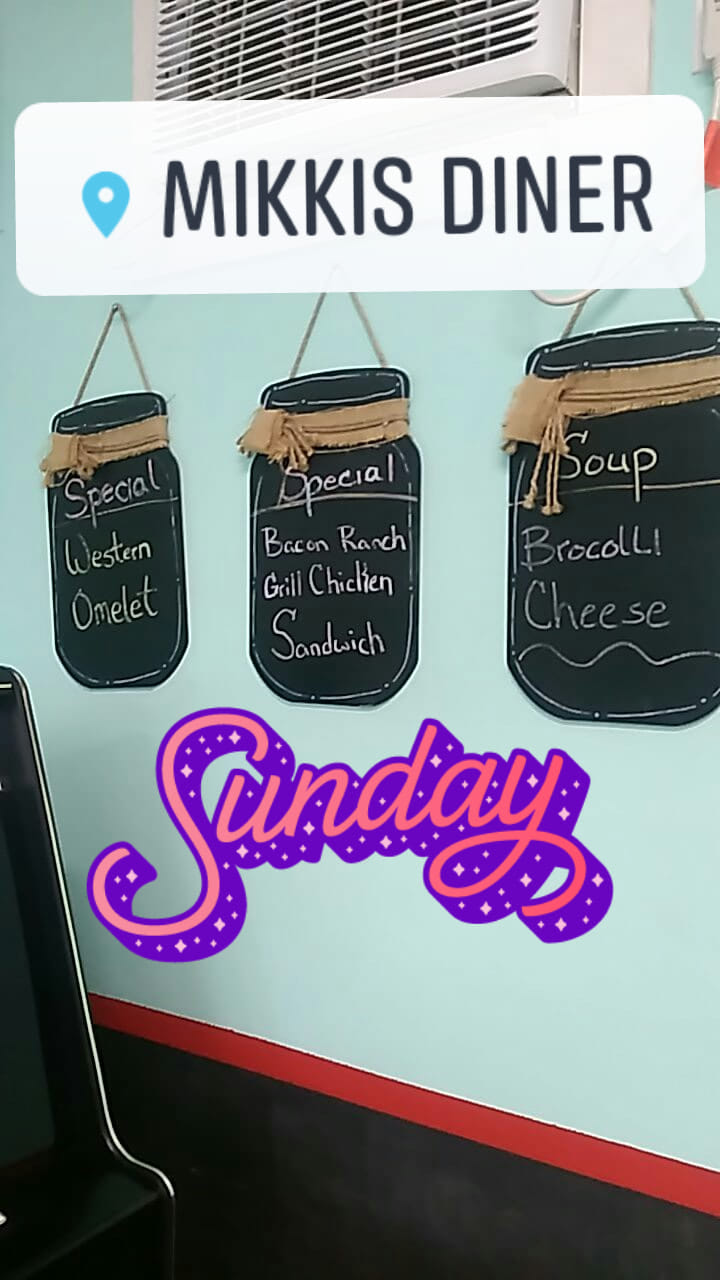 MIKKIS DINER
Special
Western
Omelet
Special
Bacon Ranch
Grill Chicken
Sandwich
Soup
BrocoLLI
Cheese
Sunday